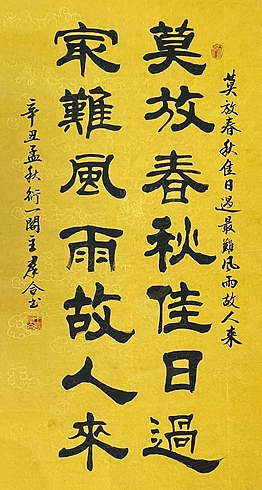 莫放春秋佳日過
冣難風雨故人來
莫放春秋佳日過最難風雨故人来
辛丑孟秋衍一閣主